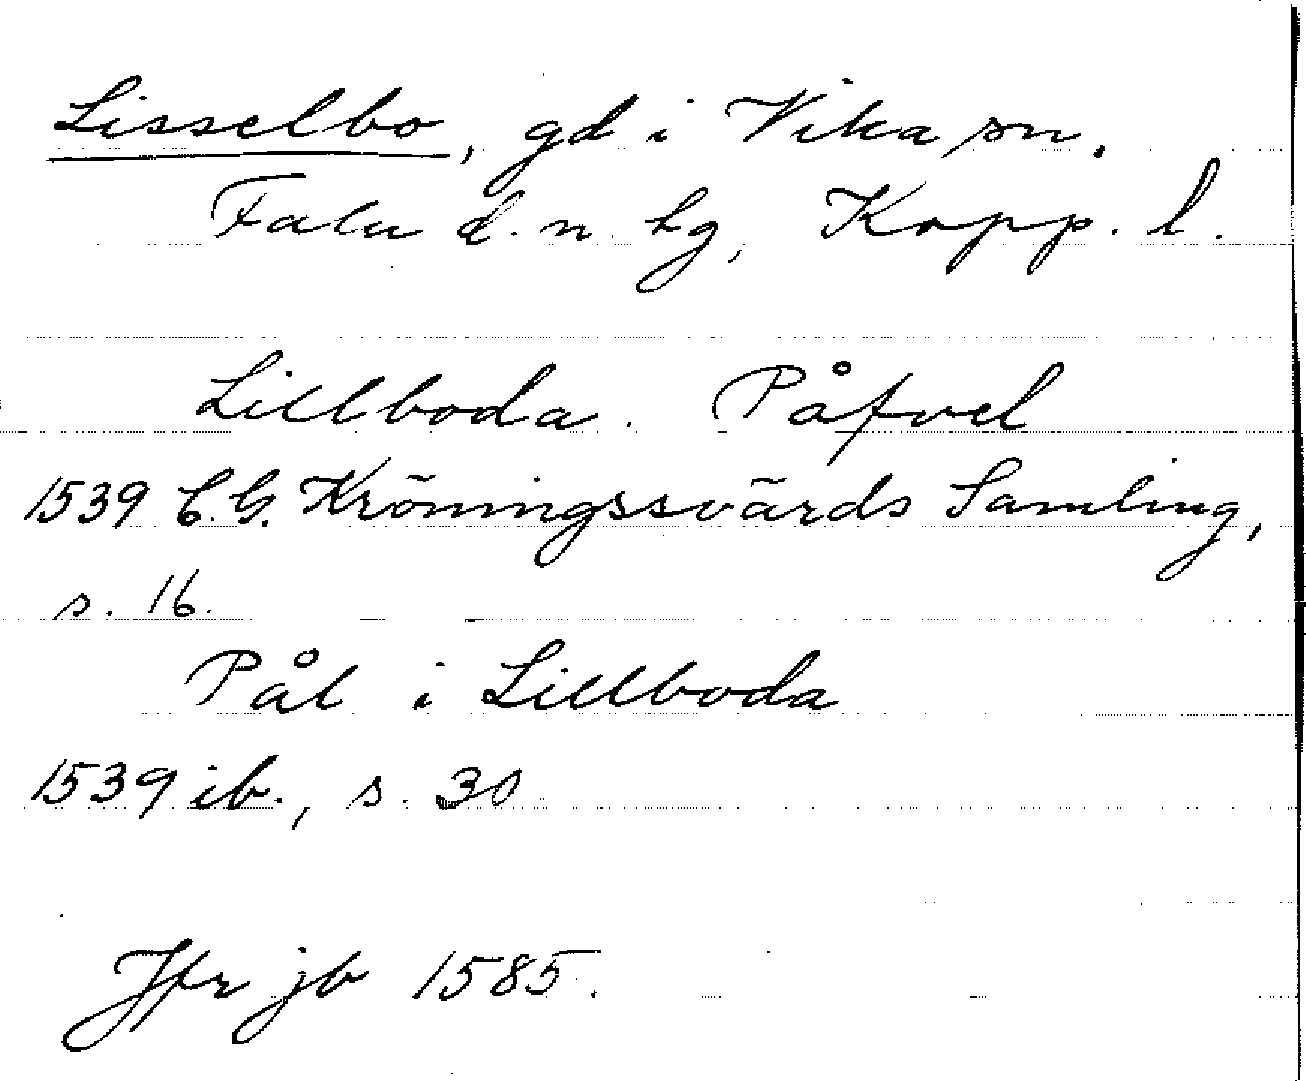 Lisselbo, gd i Vika sn,
Falu d. n. hg, Kopp. l.
Lillboda. Påfvel
1539 C.G. Kröningssvärds Samling,
s. 16.
Pål i Lillboda
1539 ib., s. 30
Jfr jb 1585.